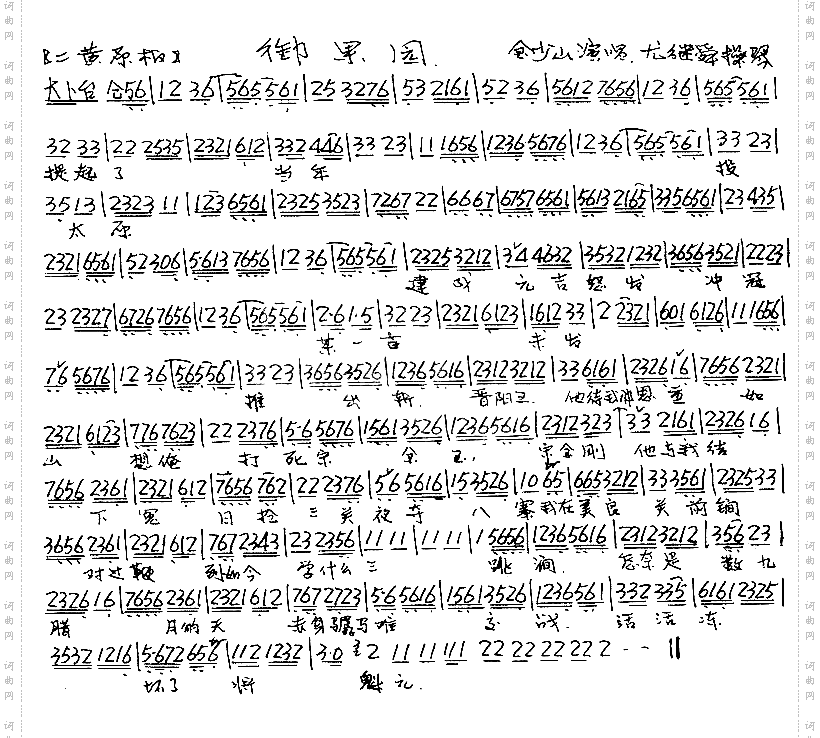 【二黄原板】 御果园 金少山演唱 尤继舜操琴
大卜台 仓56|12 36|565561|25 3276|53 2161|52 36|5612 7656|12 36|565561|
32 33|22 2535|2321 612|332 446|33 23|11 1656|1236 5676|12 36|565561|33 23|
提起了 当年 投
35 13|2323 11|123 6561|2325 3523|7267 22|6667|6757 6561|5613 2165|335 6561|23 435|
太原
2321 6561|52 306|5613 7656|12 36|565561|2325 3212|34 4632|3532 1232|3656 3521|2223|
建成 元吉怒发 冲冠
23 2327|6726 7656|12 36|565561|2·6 1·5|32 23|2321 6123|1612 33|2 2321|601 6126|11 1656|
某一言 未发
76 5676|12 36|565561|33 23|3656 3526|1236 5616|2312 3212|33 6161|2326 16|7656 2321|
推出斩 晋阳王 他待我似恩重 如
2321 6123|776 7623|22 2376|5·6 5676|1561 3526|1236 5616|2312 323|33 2161|2326 16|
山 想俺 打死宗 金 刚 他与我结
7656 2361|2321 612|7656 762|22 2376|56 5616|15 3526|10 65|665 3212|33 3561|2325 33|
下冤 日抢三关夜夺八寨我在美良 关前锏
3656 2361|2321 612|767 2343|23 2356|11 11|11 11|1 5656|1236 5616|2312 3212|356 23|
对过鞭 到如今 学什么三 跳涧 怎奈是 数九
2326 16|7656 2361|2321 612|767 2723|5·6 5616|1561 3526|1236 561|332 335|6161 2325|
腊 月的天 赤身骣马难 交战 活活冻
3532 1216|5672 656|112 1232|30 2 11 11 111 22 22 22 22 2 - -||
坏了 将 魁元